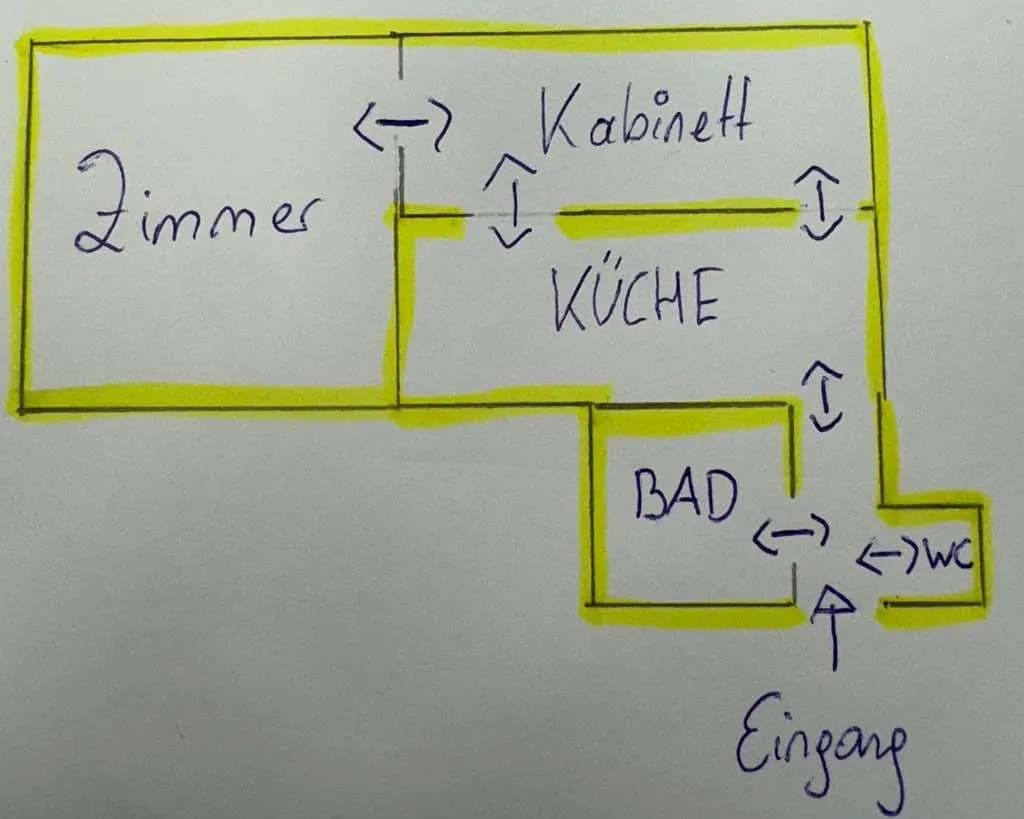 Kabinett
Zimmer
KÜCHE
BAD
WC
Eingang